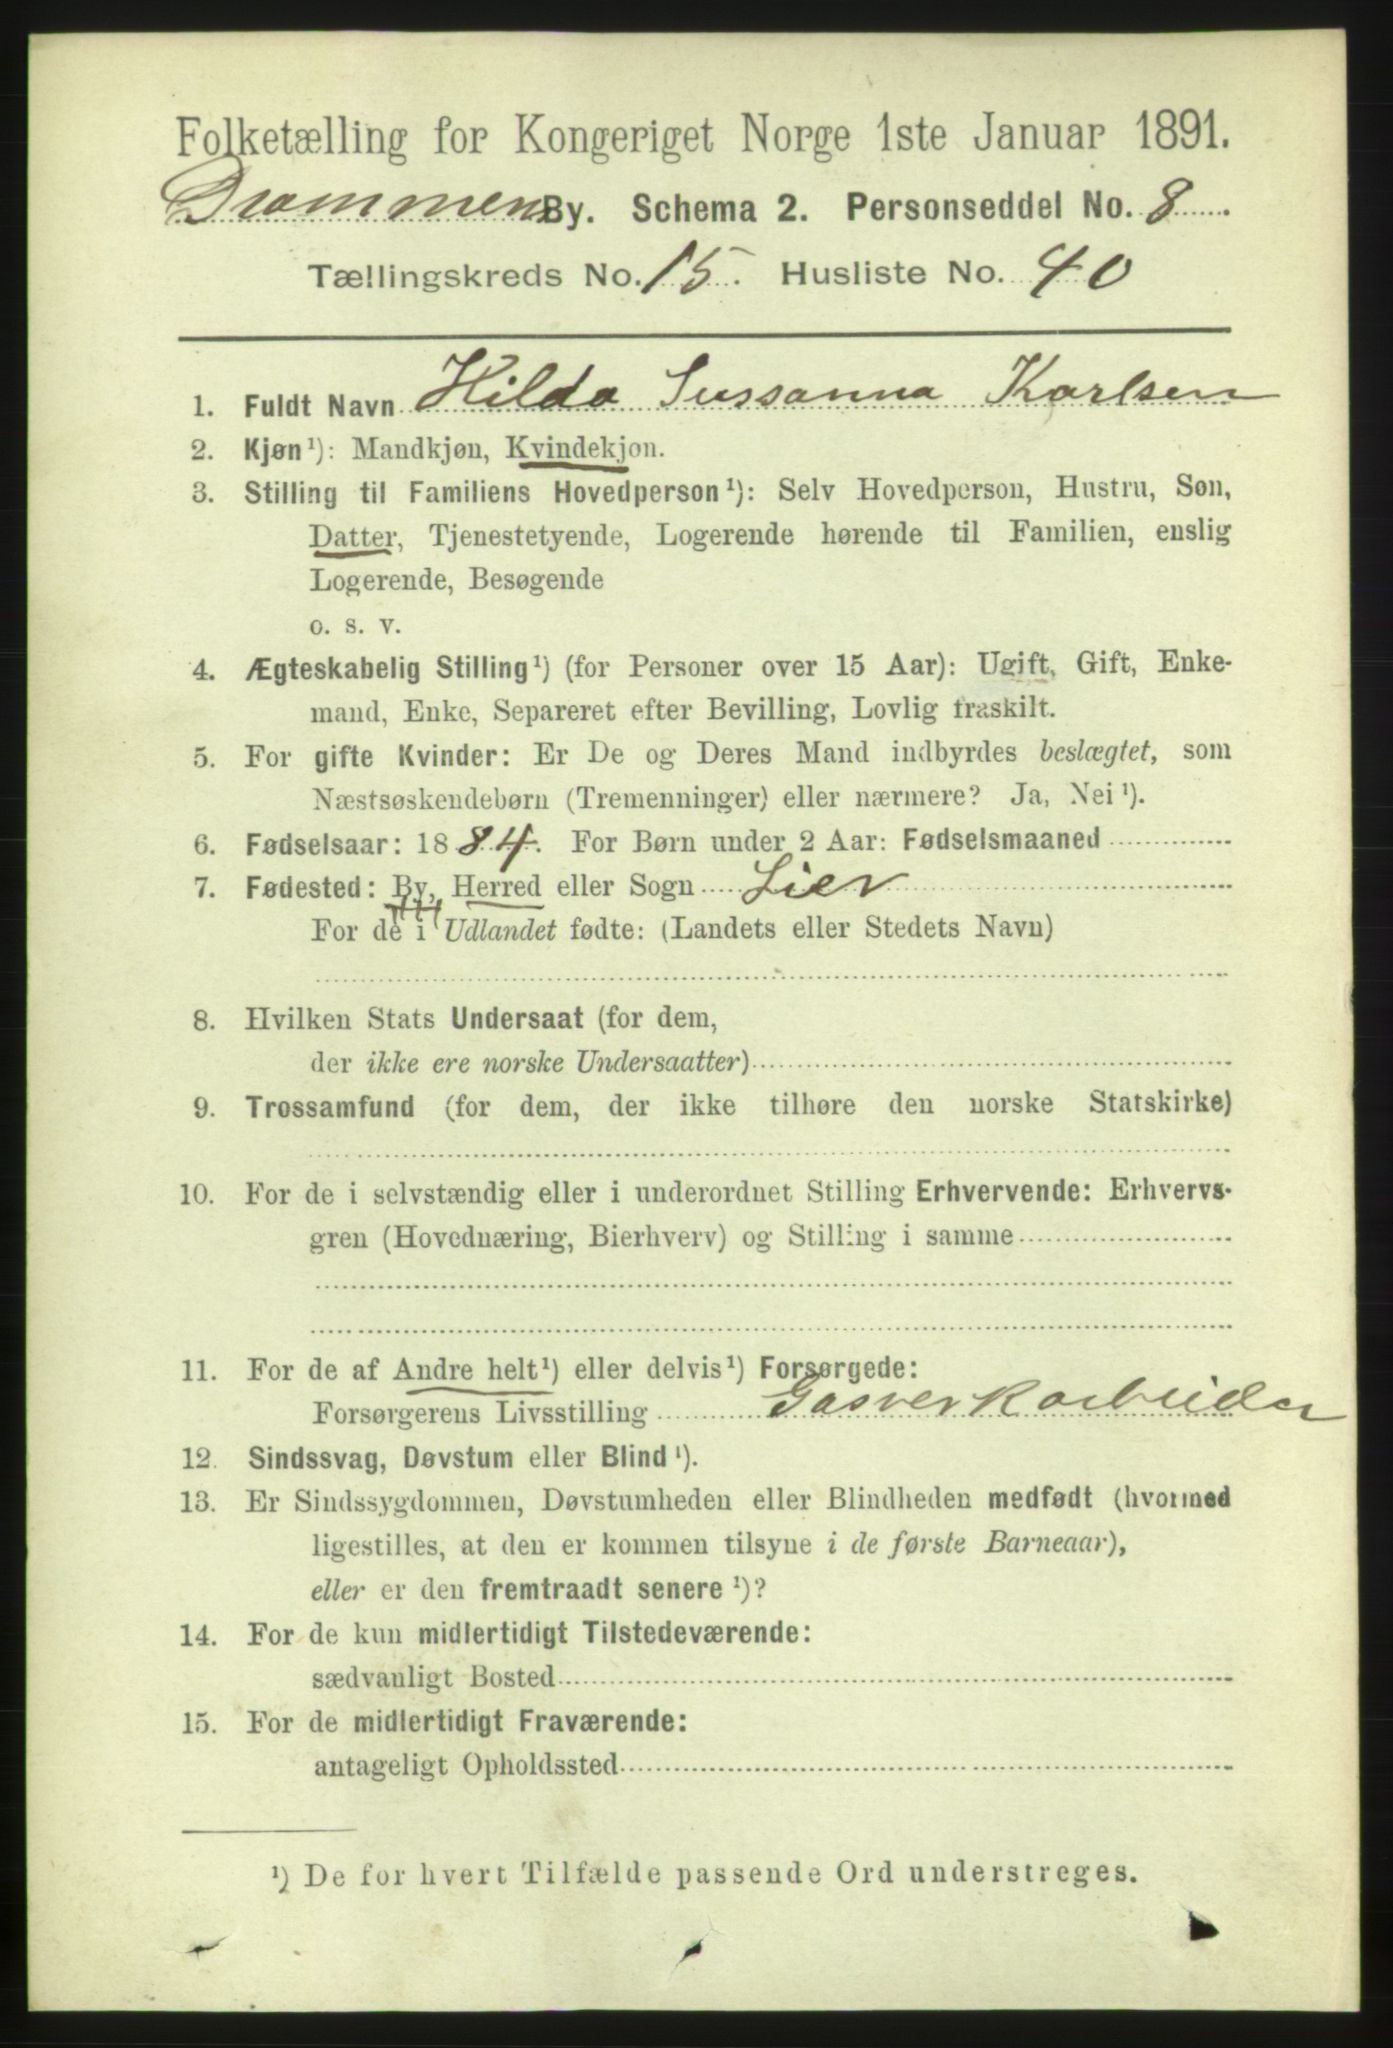 Folketælling for Kongeriget Norge 1ste Januar 1891.
Drammens By. Schema 2. Personseddel No. 8.
Tællingskreds No. 15. Husliste No. 40
1. Fuldt Navn Hilda Sussanna Karlsen
2. Kjøn¹): Mandkjøn, Kvindekjøn.
3. Stilling til Familiens Hovedperson¹): Selv Hovedperson, Hustru, Søn,
Datter, Tjenestetyende, Logerende hørende til Familien, enslig
Logerende, Besøgende
o. s. v.
4. Ægteskabelig Stilling¹) (for Personer over 15 Aar): Ugift, Gift, Enke-
mand, Enke, Separeret efter Bevilling, Lovlig fraskilt.
5. For gifte Kvinder: Er De og Deres Mand indbyrdes beslægtet, som
Næstsøskendebørn (Tremenninger) eller nærmere? Ja, Nei¹).
6. Fødselsaar: 1884. For Børn under 2 Aar: Fødselsmaaned
7. Fødested: By, Herred eller Sogn Lier
For de i Udlandet fødte: (Landets eller Stedets Navn)
8. Hvilken Stats Undersaat (for dem,
der ikke ere norske Undersaatter)
9. Trossamfund (for dem, der ikke tilhøre den norske Statskirke)
10. For de i selvstændig eller i underordnet Stilling Erhvervende: Erhvervs-
gren (Hovednæring, Bierhverv) og Stilling i samme
11. For de af Andre helt¹) eller delvis¹) Forsørgede:
Forsørgerens Livsstilling Gasverkarbeider
12. Sindssvag, Døvstum eller Blind¹).
13. Er Sindssygdommen, Døvstumheden eller Blindheden medfødt (hvormed
ligestilles, at den er kommen tilsyne i de første Barneaar),
eller er den fremtraadt senere¹)?
14. For de kun midlertidigt Tilstedeværende:
sædvanligt Bosted
15. For de midlertidigt Fraværende:
antageligt Opholdssted
¹) De for hvert Tilfælde passende Ord understreges.